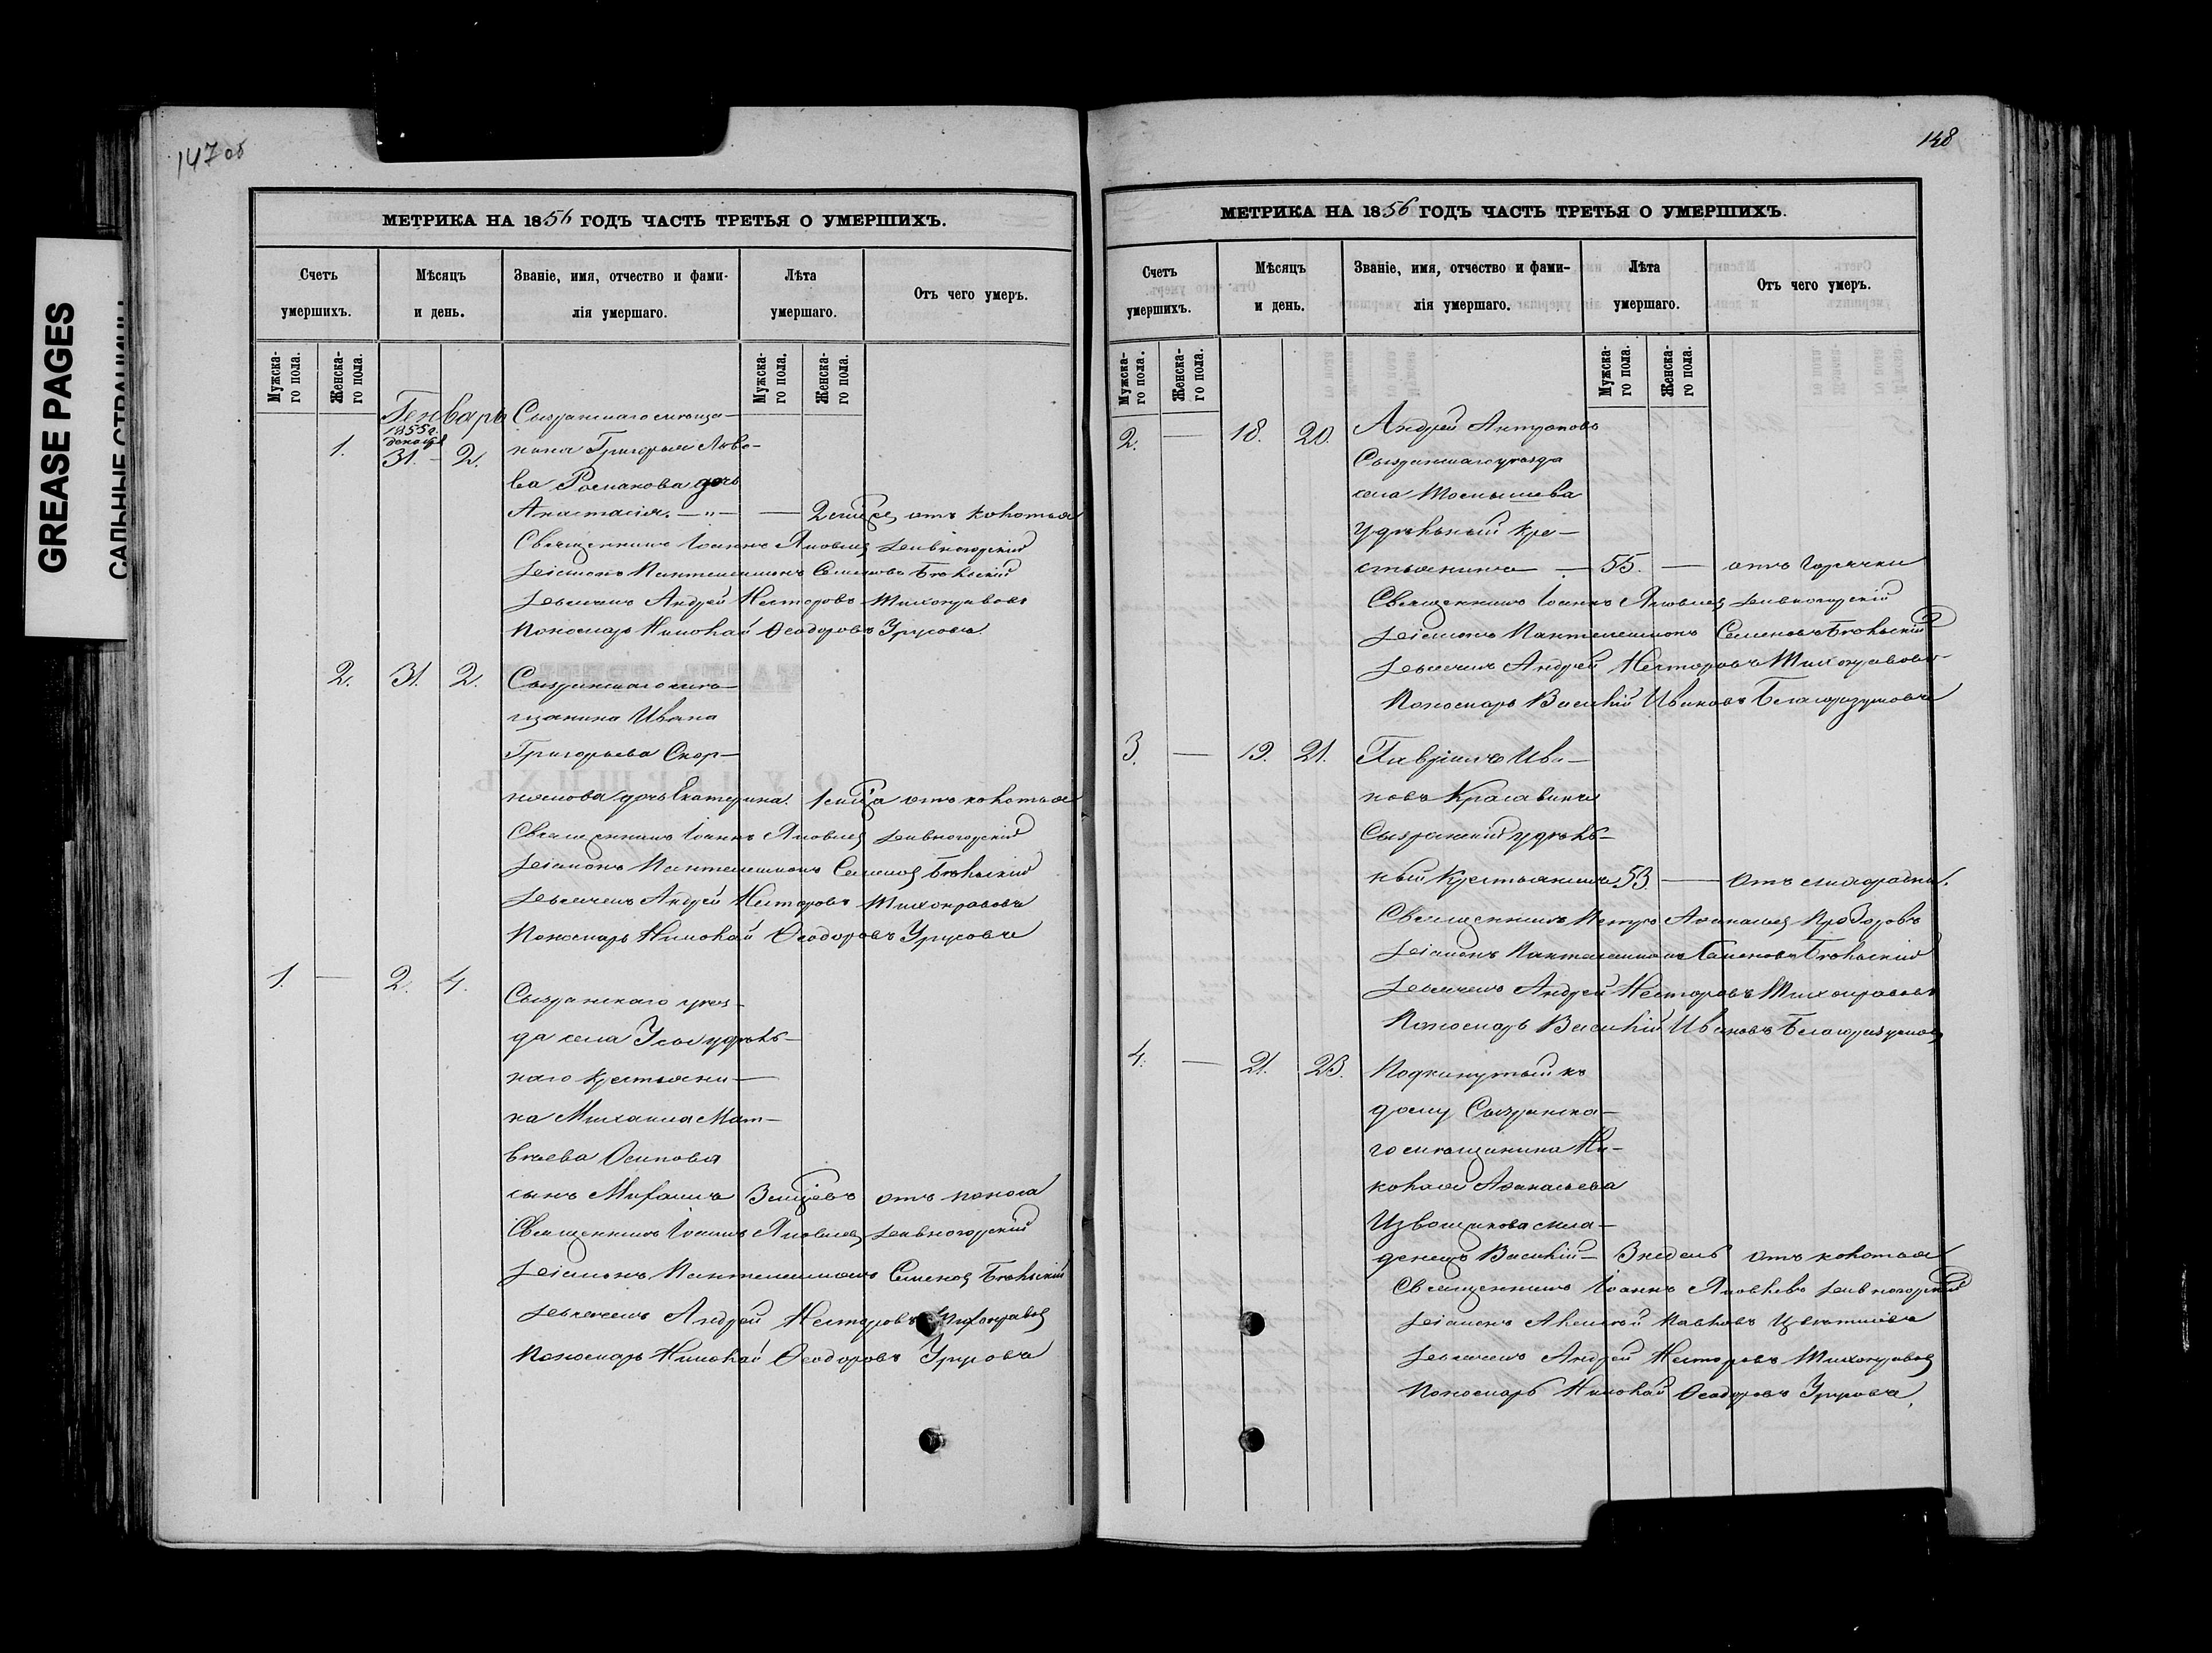 GREASE PAGES
САЛЬНЫЕ СТРАНИЦЫ
147 об
МЕТРИКА НА 1856 ГОДЪ ЧАСТЬ ТРЕТЬЯ О УМЕРШИХЪ.
Счетъ умершихъ.
Мѣсяцъ и день.
Званіе, имя, отчество и фами-
лія умершаго.
Лѣта умершаго.
Отъ чего умеръ.
Мужска-
го пола.
Женска-
го пола.
Мужска-
го пола.
Женска-
го пола.
Генварь Сызранскаго мѣща-
1855 г.
декабря
1. 31. – 2. нина Григорья Льво-
ва дочь
Анастасія. — „ — — 2 мѣсяц отъ колотья
Священникъ Іоаннъ Яковлев Дивногорскій
Діаконъ Пантелеимонъ Семеновъ Бѣльскій
Дьячекъ Андрей Несторовъ Тихонравовъ
Пономарь Николай Ѳеодоровъ Урусовъ
2. 31. 2. Сызранскаго мѣ-
щанина Ивана
Григорьева Скор-
някова дочь Екатерина. 1 мѣс̃ца отъ колотья
Священникъ Іоаннъ Яковлев Дивногорскій
Діаконъ Пантелеимонъ Семенов Бѣльскій
Дьячекъ Андрей Несторовъ Тихонравовъ
Пономарь Николай Ѳеодоровъ Урусовъ
1. — 2. 4. Сызранскаго уѣз-
да села Усы удѣль-
наго крестьяни-
на Михаила Мат-
вѣева Осипова
сынъ Михаилъ 3 мѣс̃цевъ отъ поноса
Священникъ Іоаннъ Яковлев Дивногорскій
Діаконъ Пантелеимонъ Семенов Бѣльскій
Дьячекъ Андрей Несторовъ Тихонравов
Пономарь Николай Ѳеодоровъ Урусовъ
148
МЕТРИКА НА 1856 ГОДЪ ЧАСТЬ ТРЕТЬЯ О УМЕРШИХЪ.
Счетъ умершихъ.
Мѣсяцъ и день.
Званіе, имя, отчество и фами-
лія умершаго.
Лѣта умершаго.
Отъ чего умеръ.
Мужска-
го пола.
Женска-
го пола.
Мужска-
го пола.
Женска-
го пола.
2. — 18. 20. Андрей Антроповъ
Сызранскаго уѣзда
села
удѣльный кре-
стьянинъ — 55. — отъ горячки
Священникъ Іоаннъ Яковлев Дивногорскій
Діаконъ Пантелеимонъ Семеновъ Бѣльскій
Дьячекъ Андрей Несторовъ Тихонравовъ
Пономарь Василій Ивановъ Благоразумовъ
3. — 19. 21. Гавріилъ Ива-
новъ Красавинъ
Сызранскій удѣль-
ный крестьянинъ 53 — отъ лихорадки.
Священникъ Петръ Аѳанасьев Прозоровъ
Діаконъ Пантелеимонъ Семеновъ Бѣльскій
Дьячекъ Андрей Несторовъ Тихонравовъ
Пономарь Василій Ивановъ Благоразумов
4. — 21. 23. Подкинутый къ
дому Сызранска-
го мѣщанина Ни-
колая Аѳанасьева
Извощикова мла-
денецъ Василій — 3 недель отъ колотья
Священникъ Іоаннъ Яковлевъ Дивногорскій
Діаконъ Алексѣй Павловъ
Дьячекъ Андрей Несторовъ Тихонравов
Пономарь Николай Ѳеодоровъ Урусовъ.